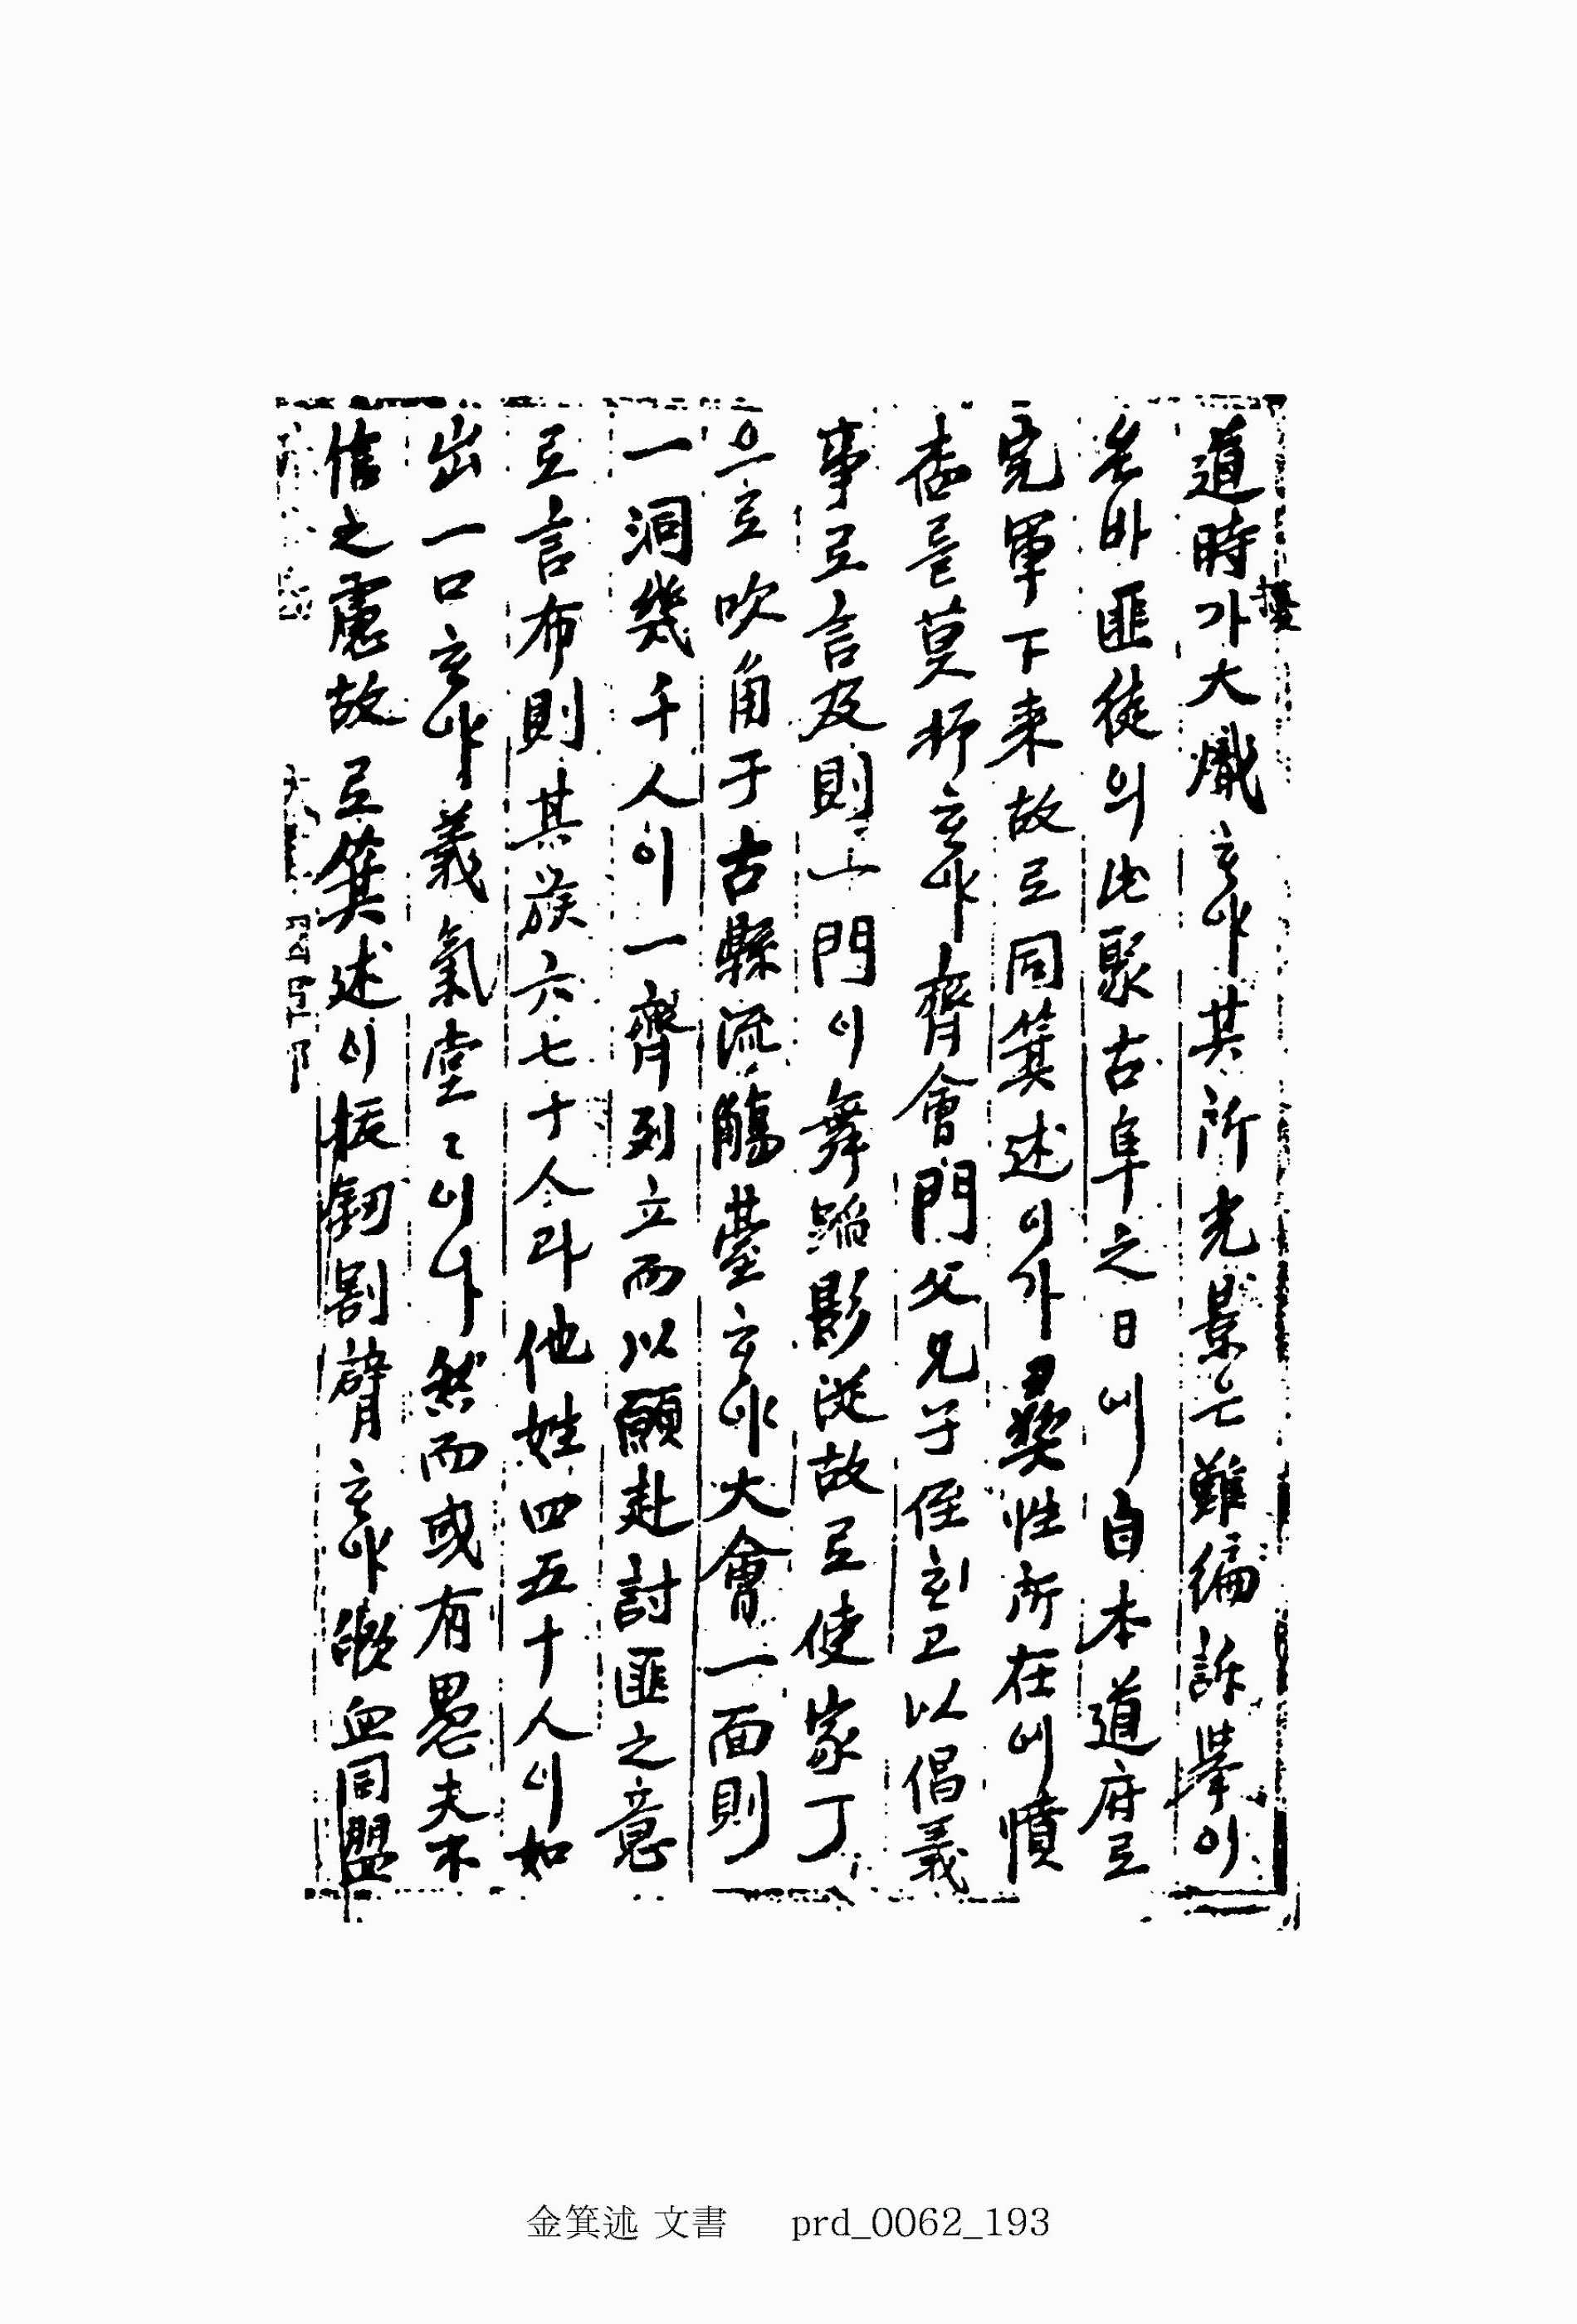 道時가大熾ᄒᆞ야其所光景은難編訴擧이
擾
온바匪徒의屯聚古阜之日에自本道府로
完軍下来故로同箕述이가彛性所在에憤
莫抑ᄒᆞ야齊會門父兄子侄ᄒᆞ고以倡義
事로言及則一門이舞蹈影從故로使家丁
으로吹角于古縣流觴臺ᄒᆞ야大會一面則
一洞幾千人이一齊列立而以願赴討匪之意
로言布則其族六七十人과他姓四五十人이如
出一口ᄒᆞ야義氣堂〻이나然而或有愚夫不
信之慮故로箕述이拔劒割臂ᄒᆞ야歃血同盟
金箕述 文書 prd_0062_193